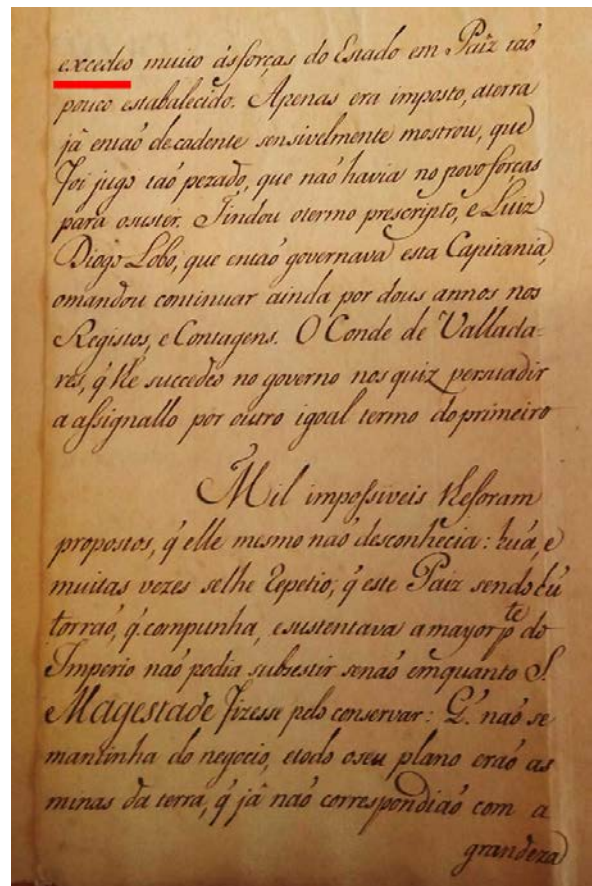 excedeo muito ás forças do Estado em Paiz taõ
pouco estabalecido. Apenas era imposto, aterra
já entaõ decadente sensivelmente mostrou, que
foi jugo taõ pezado, que naõ havia no povo forças
para osuster. Findou otermo prescripto, e Luiz
Diogo Lobo, que entaõ governava esta Capitania,
omandou continuar ainda por dous annos nos
Registos, e Contagens. O Conde de Vallada-
res, q̃ lhe succedeo no governo nos quiz persuadir
a assignallo por outro igoal termo doprimeiro
Mil impossiveis lheforam
propostos, q̃ elle mesmo naõ desconhecia: huá, e
muitas vezes selhe repetio; q̃ este Paiz sendo hũ
torraõ, q̃ compunha, esustentava amayor pte do
Imperio naõ podia subsestir senaõ emquanto S.
Magestade fizesse pelo conservar: Q̃ naõ se
mantinha do negocio, etodo oseu plano eraõ as
minas da terra, q̃ já naõ correspondiaõ com a
grandeza